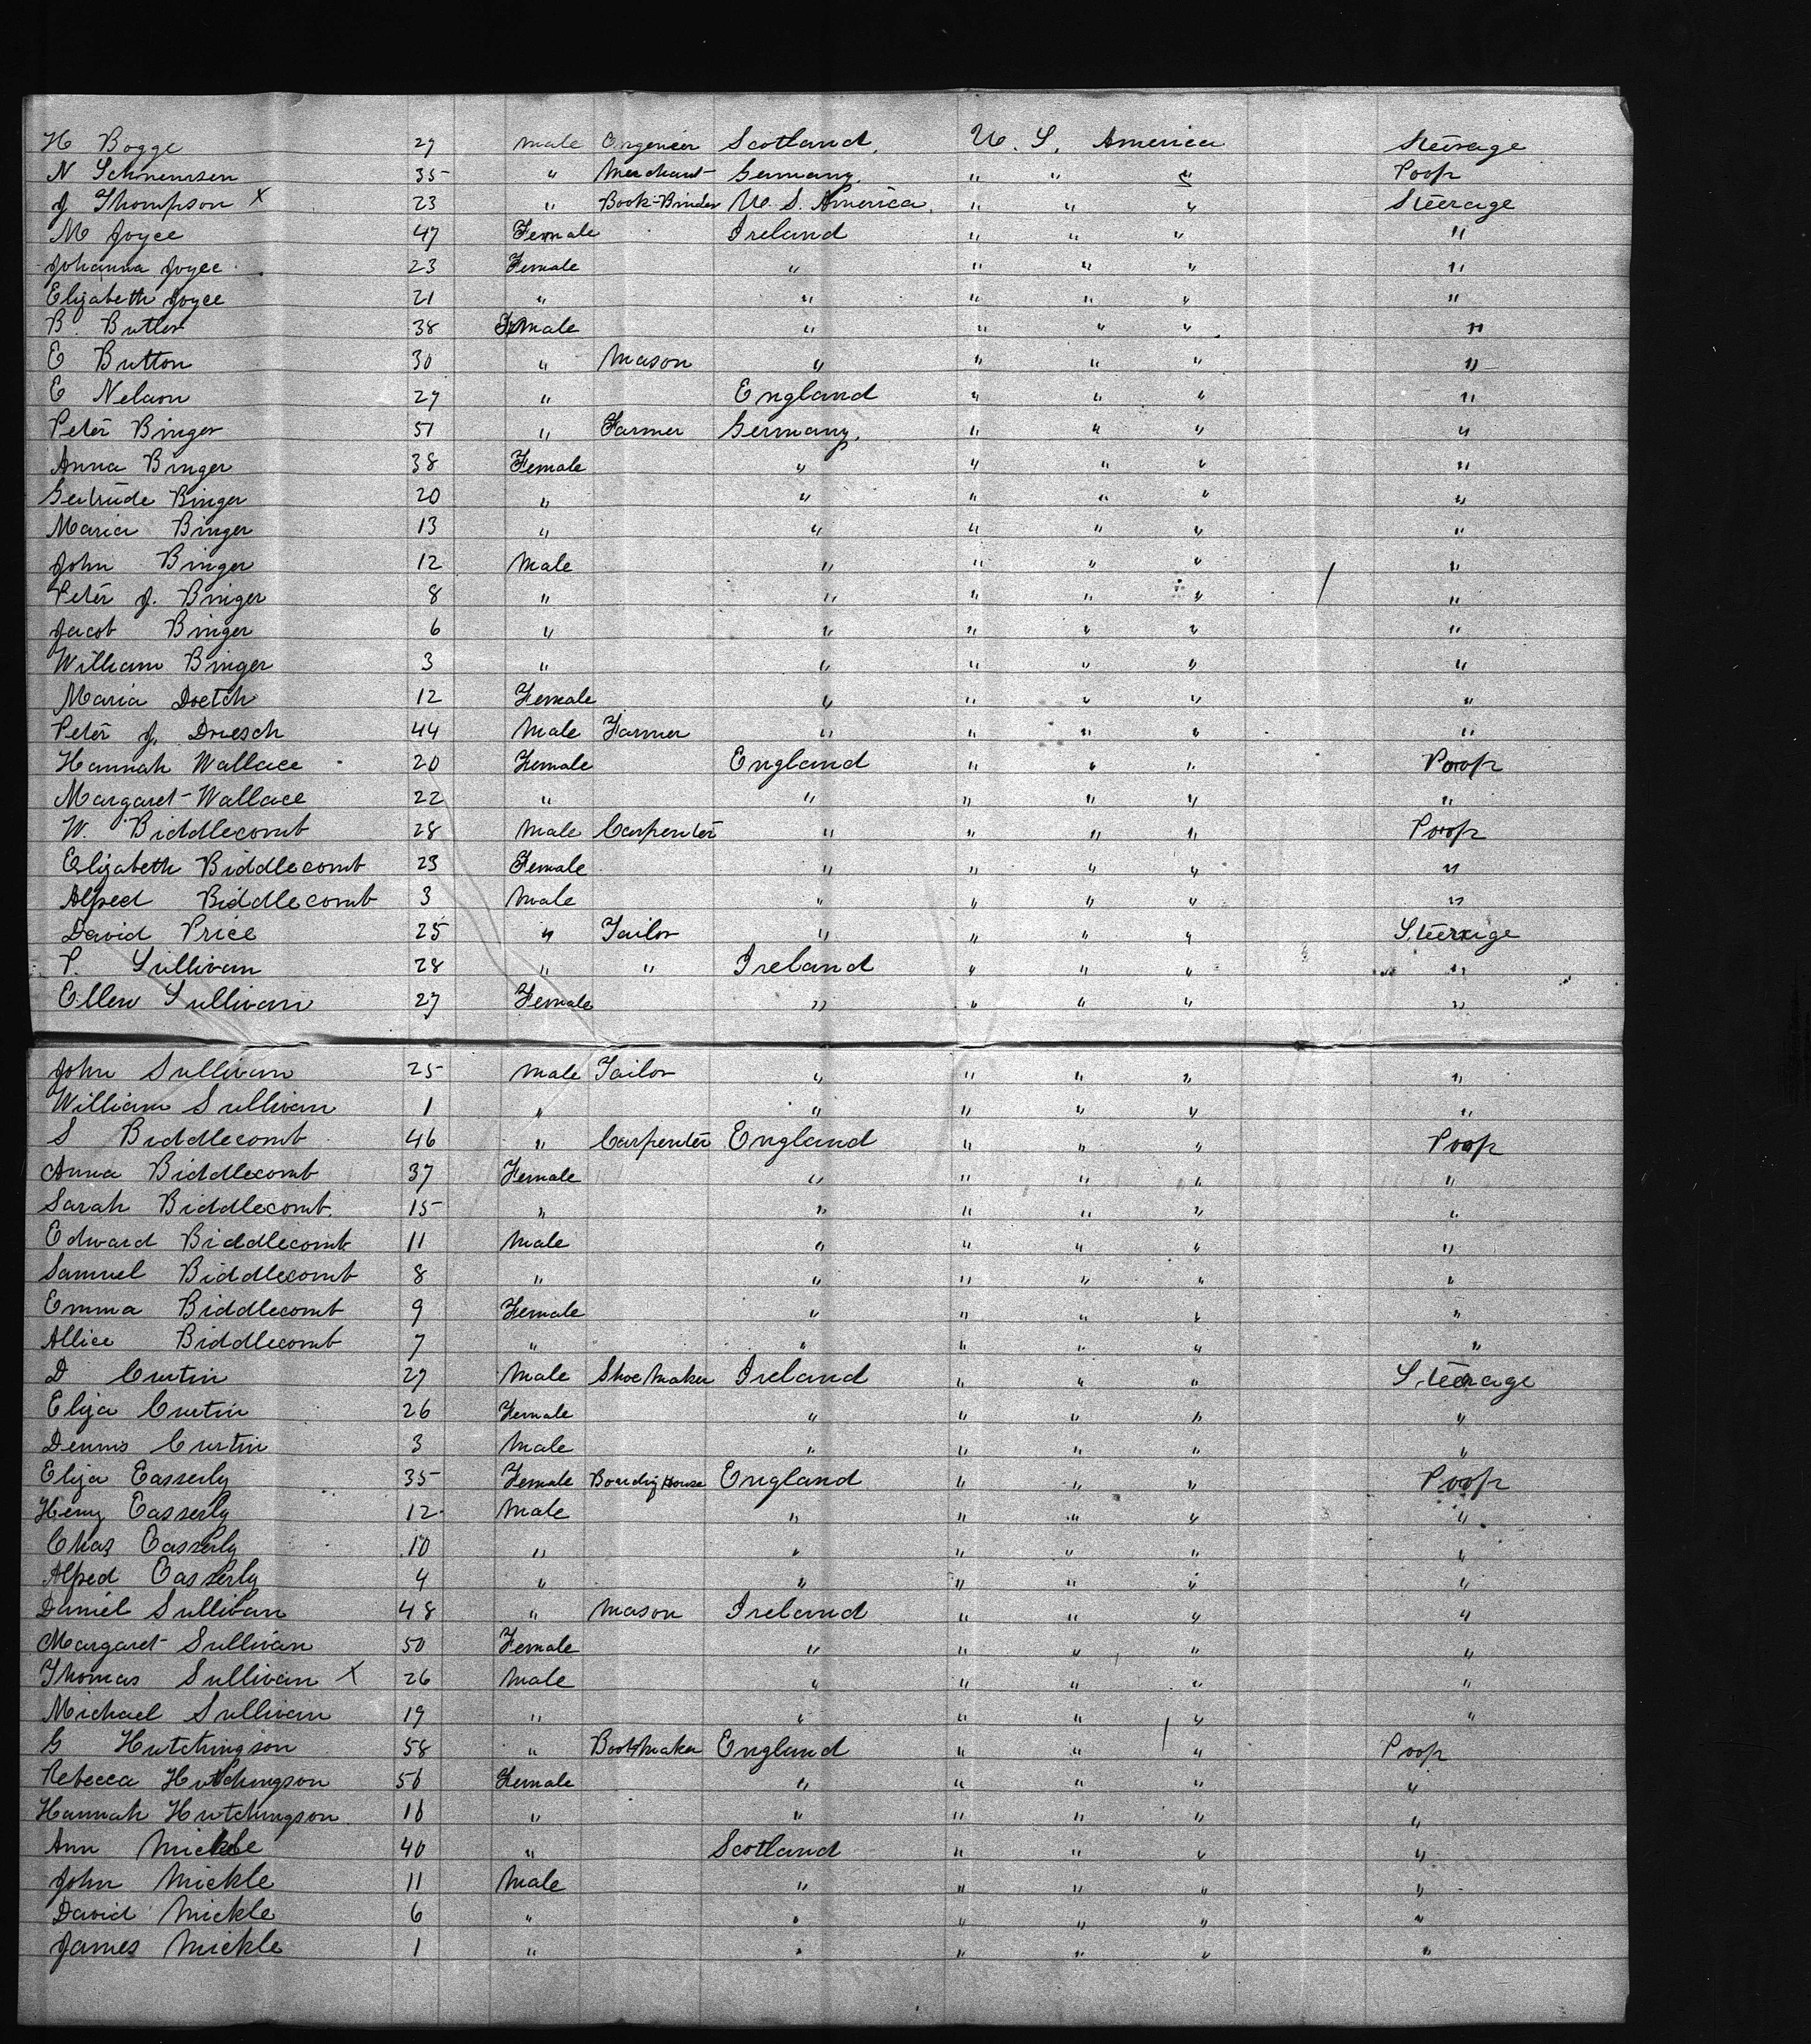 H Bogge 27 male Engenier Scotland, U. S. America Steerage
N 35 " Merchant Germany, " " " Poop
J Thompson X 23 " Book-Binder U. S. America, " " " Steerage
M Joyce 47 Female Ireland " " " "
Johanna Joyce 23 Female " " " " "
Elizabeth Joyce 21 " " " " " "
B. Butler 38 Female " " " " "
E Button 30 " Mason " " " " "
E Nelson 27 " England " " " "
Peter Binger 51 " Farmer Germany, " " " "
Anna Binger 38 Female " " " " "
Gertrude Binger 20 " " " " " "
Maria Binger 13 " " " " " "
John Binger 12 Male " " " " "
Peter J. Binger 8 " " " " " "
Jacob Binger 6 " " " " " "
William Binger 3 " " " " " "
Maria Doetch 12 Female " " " " "
Peter J. Driesch 44 Male Farmer " " " " "
Hannah Wallace 20 Female England " " " Poop
Margaret Wallace 22 " " " " " "
W. Biddlecomb 28 Male Carpenter " " " " Poop
Elizabeth Biddlecomb 23 Female " " " " "
Alfred Biddlecomb 3 Male " " " " "
David Price 25 " Tailor " " " " Steerage
P. Sullivan 28 " " Ireland " " " "
Ellen Sullivan 27 Female " " " " "
John Sullivan 25 Male Tailor " " " " "
William Sullivan 1 " " " " " "
S Biddlecomb 46 " Carpenter England " " " Poop
Anna Biddlecomb 37 Female " " " " "
Sarah Biddlecomb. 15 " " " " " "
Edward Biddlecomb 11 Male " " " " "
Samuel Biddlecomb 8 " " " " " "
Emma Biddlecomb 9 Female " " " " "
Allice Biddlecomb 7 " " " " " "
D Curtin 27 Male Shoe Maker Ireland " " " Steerage
Eliza Curtin 26 Female " " " " "
Dennis Curtin 3 Male " " " " "
Eliza Casserly 35 Female Boardig House England " " " Poop
Henry Casserly 12 Male " " " " "
Chas Casserly 10 " " " " " "
Alfred Casserly 4 " " " " " "
Daniel Sullivan 48 " Mason Ireland " " " "
Margaret Sullivan 50 Female " " " " "
Thomas Sullivan X 26 Male " " " " "
Michael Sullivan 19 " " " " " "
G Hutchingson 58 " Bootmaker England " " " Poop
Rebecca Hutchingson 56 Female " " " " "
Hannah Hutchingson 16 " " " " " "
Ann Mickle 40 " Scotland " " " "
John Mickle 11 Male " " " " "
David Mickle 6 " " " " " "
James Mickle 1 " " " " " "